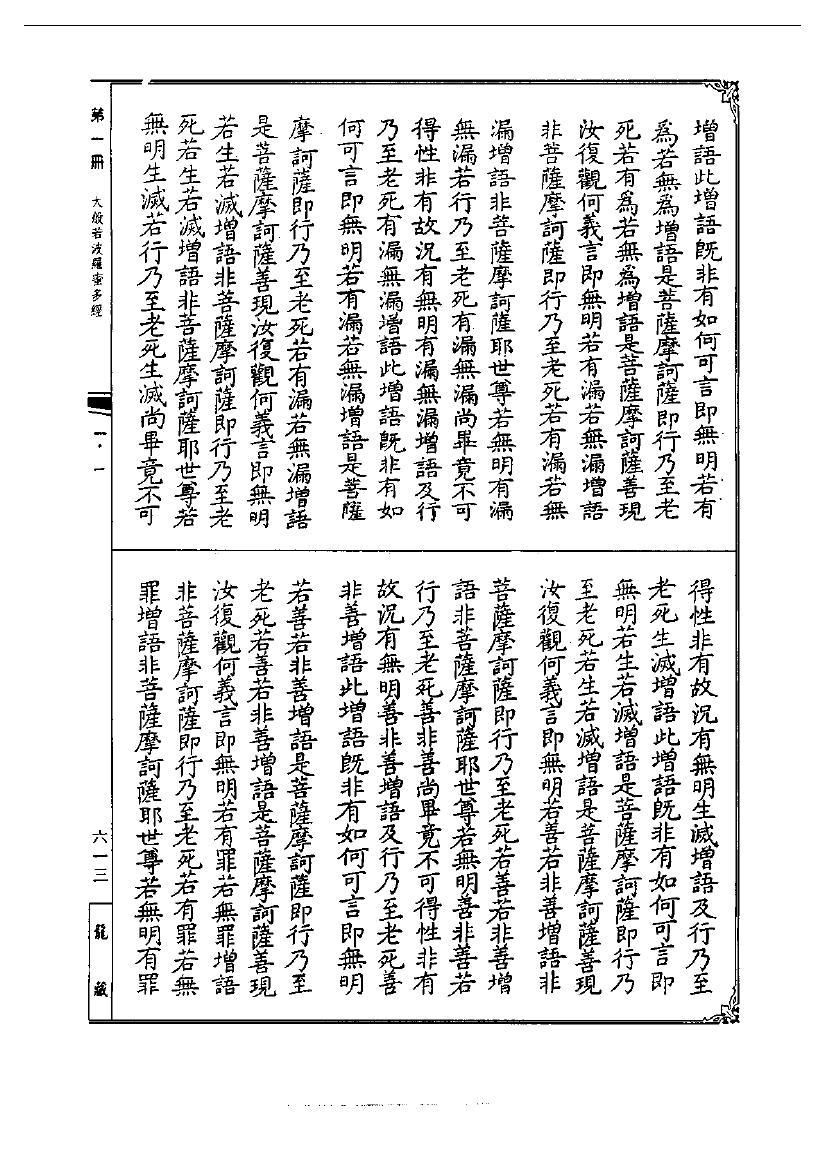 增語此增語既非有如何可言即無明若有
爲若無爲增語是菩薩摩訶薩即行乃至老
死若有爲若無爲增語是菩薩摩訶薩善現
汝復觀何義言即無明若有漏若無漏增語
非菩薩摩訶薩即行乃至老死若有漏若無
漏增語非菩薩摩訶薩耶世尊若無明有漏
無漏若行乃至老死有漏無漏尚畢竟不可
得性非有故況有無明有漏無漏增語及行
乃至老死有漏無漏增語此增語既非有如
何可言即無明若有漏若無漏增語是菩薩
摩訶薩即行乃至老死若有漏若無漏增語
是菩薩摩訶薩善現汝復觀何義言即無明
若生若滅增語非菩薩摩訶薩即行乃至老
死若生若滅增語非菩薩摩訶薩耶世尊若
無明生滅若行乃至老死生滅尚畢竟不可
得性非有故況有無明生滅增語及行乃至
老死生滅增語此增語既非有如何可言即
無明若生若滅增語是菩薩摩訶薩即行乃
至老死若生若滅增語是菩薩摩訶薩善現
汝復觀何義言即無明若善若非善增語非
菩薩摩訶薩即行乃至老死若善若非善增
語非菩薩摩訶薩耶世尊若無明善非善若
行乃至老死善非善尚畢竟不可得性非有
故況有無明善非善增語及行乃至老死善
非善增語此增語既非有如何可言即無明
若善若非善增語是菩薩摩訶薩即行乃至
老死若善若非善增語是菩薩摩訶薩善現
汝復觀何義言即無明若有罪若無罪增語
非菩薩摩訶薩即行乃至老死若有罪若無
罪增語非菩薩摩訶薩耶世尊若無明有罪
第一冊 大般若波羅蜜多經
一·一
六一三
龍藏